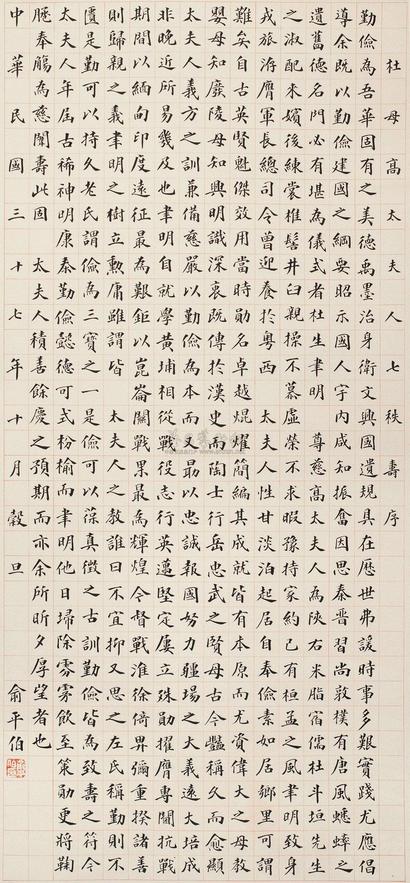 杜母高太夫人七秩壽序
勤儉為吾華固有之美德禹墨治身衛文興國遺規具在歷世弗諼時事多艱實踐尤應倡
導余既以勤儉建國之綱要昭示國人宇內咸知振奮因思秦晉習尚敦樸有唐風蟋蟀之
遺舊德名門必有堪為儀式者杜生聿明 尊慈高太夫人為陝右米脂宿儒杜斗垣先生
之淑配來嬪後練裳椎髻井臼親操不慕虛榮不求暇豫持家約己有桓孟之風聿明致身
戎旅洊膺軍長總司令曾迎養於粵西 太夫人性甘淡泊起居自奉儉素如居鄉里可謂
難矣自古英賢魁傑效用當時勛名卓越焜燿簡編其成就皆有本原而尤資偉大之母教
嬰母知廢陵母知興明識深衷既傳於漢史而陶士行岳忠武之賢母古今豔稱久而愈顯
太夫人義方之訓兼備慈嚴以勤儉為本而又最以忠誠報國努力疆場之大義遠大培成
非晚近所易幾及也聿明自就學黃埔相從戰役志行英邁堅定屢立殊勛擢膺專閫抗戰
期間以緬向印度遠征最為艱鉅以崑崙關戰果最為輝煌今督戰淮徐倚畀彌重揆諸善
則歸親之義聿明之樹立勳庸雖謂皆 太夫人之教誰曰不宜抑又思之左氏稱勤則不
匱是勤可以持久老氏謂儉為三寶之一是儉可以葆真徵之古訓勤儉皆為致壽之符今
太夫人年屆古稀神明康泰勤儉懿德可式枌榆而聿明他日埽除雰雺飲至策勛更將鞠
奉觴為慈闈壽此固 太夫人積善餘慶之預期而亦余所昕夕厚望者也
中華民國三十七年十月穀旦 俞平伯